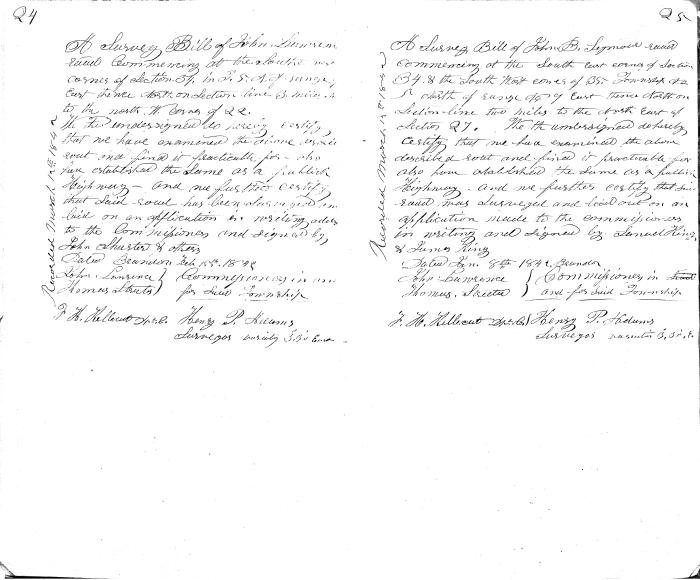 24
A Survey Bill of John Lawren
raud Commencing at the South
corner of Section 34, in T. 5. N. of range
East thence North on Section line 3 miles
to the north W. Corner of 22.
We the undersigned do hereby certify
that we have examened the above
rout and find it practicable for - also
have established the Same as a publick
Highway - and we further certify
that Said roud has been
laid on an application in writing
to the Commissioners and signed by
John Shuster & others
Dated Brandon Feb 15th 1842
John Lawrence } Commissioners in
Thomas Streeter } for Said Township
F. H. Hellecut Henry P. Adams
Surveyor
Recorded March 12th 1842
25
A Survey Bill of John B. Seymour raud
commencing at the South east corner of Section
34 & the South West corner of 35 Township
5 North of range No 7 East thence North on
Section line two miles to the North East of
Section 27. We the undersigned do hereby
certify that we have examined the above
described rout and find it practicable for
also have established the Same as a publick
Highway. And we further certify that Said
raud was Surveyed and laid out on an
application made to the commissioners
in writing and Signed by Samuel King
& James King
Dated Jan. 8th 184 Brandon
John Lawrence } Commissioners in
Thomas, Streeter } and for Said Township
F. H. Hellecut Henry P. Adams
Surveyor
Recorded March 12th 1842